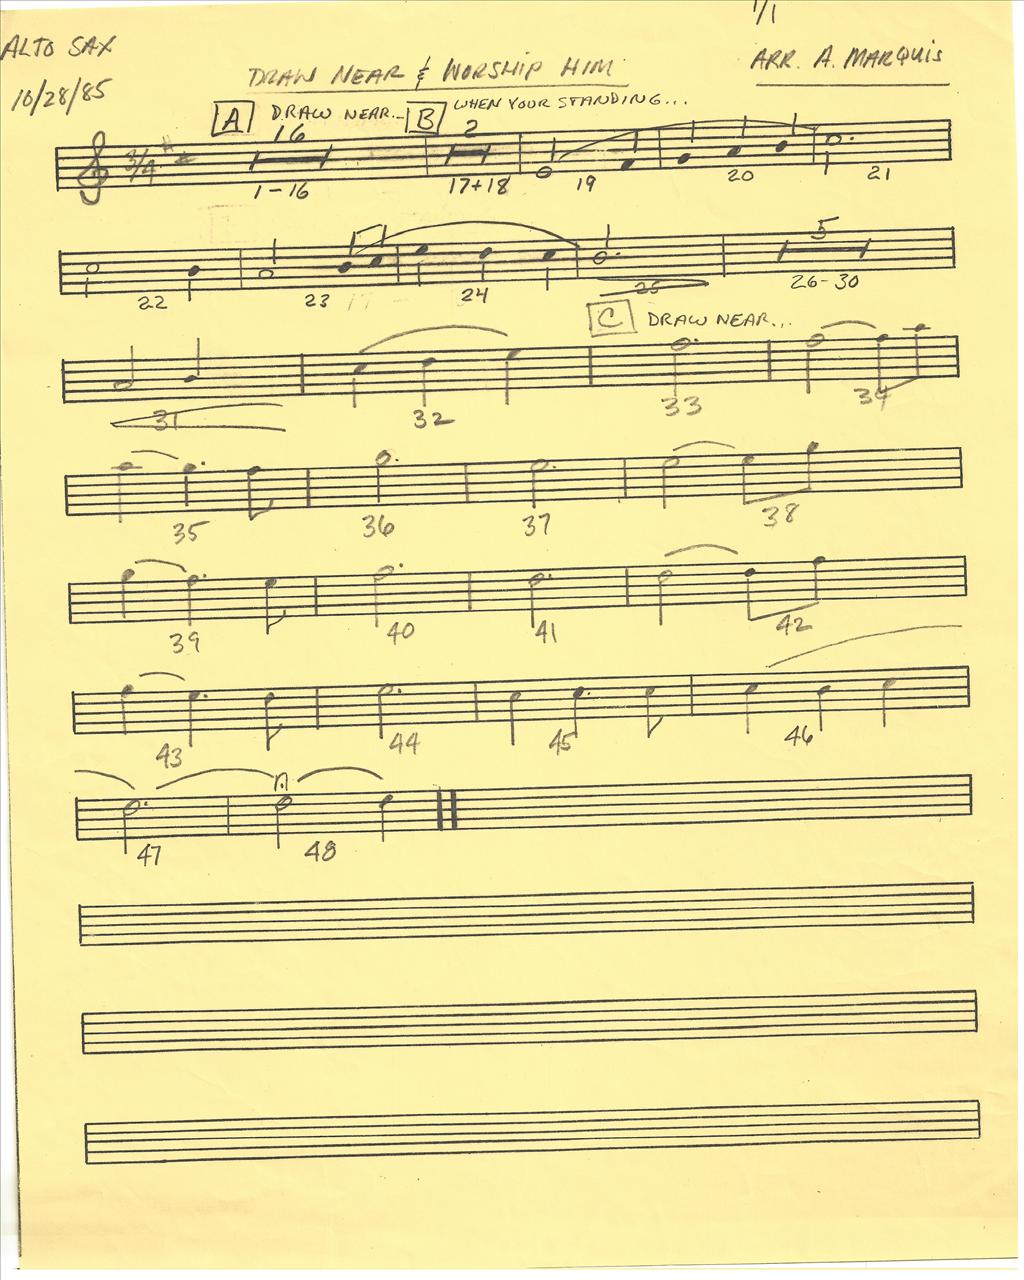 1/1
ALTO SAX
10/28/85
DRAW NEAR & WORSHIP HIM
ARR. A. MARQUIS
A DRAW NEAR... B WHEN YOUR STANDING...
3/4 16 2
1-16 17+18 19 20 21
5
22 23 24 25 26-30
C DRAW NEAR...
31 32 33 34
35 36 37 38
39 40 41 42
43 44 45 46
47 48